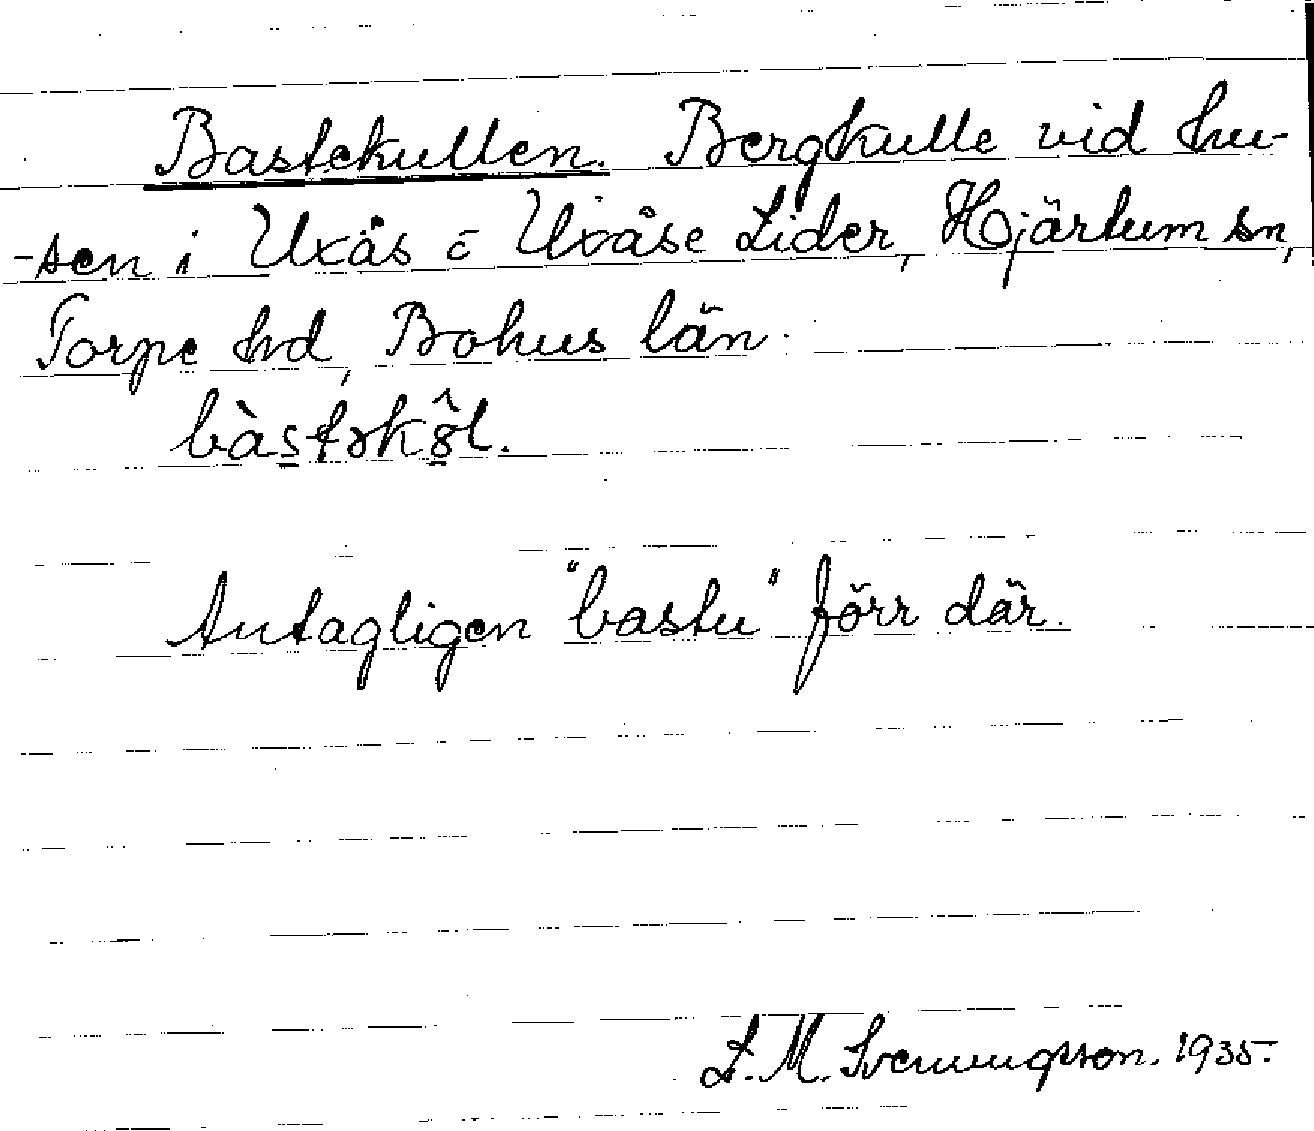 Bastekullen. Bergkulle vid hu-
-sen i Uxås o Uxåse Lider, Hjärtum sn,
Torpe hd, Bohus län.
bàstəkö̂l.
Antagligen "bastu" förr där.
L. M. Svenungsson. 1935.